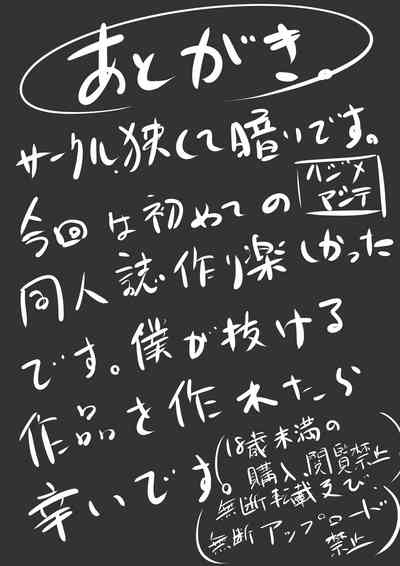 あとがき。
サークル、狭くて暗いです。
今回は初めての
ハジメ
マシテ
同人誌作り楽しかった
です。僕が抜ける
作品を作れたら
幸いです。
(18歳未満の
購入、閲覧禁止
無断転載及び
無断アップロード
禁止)